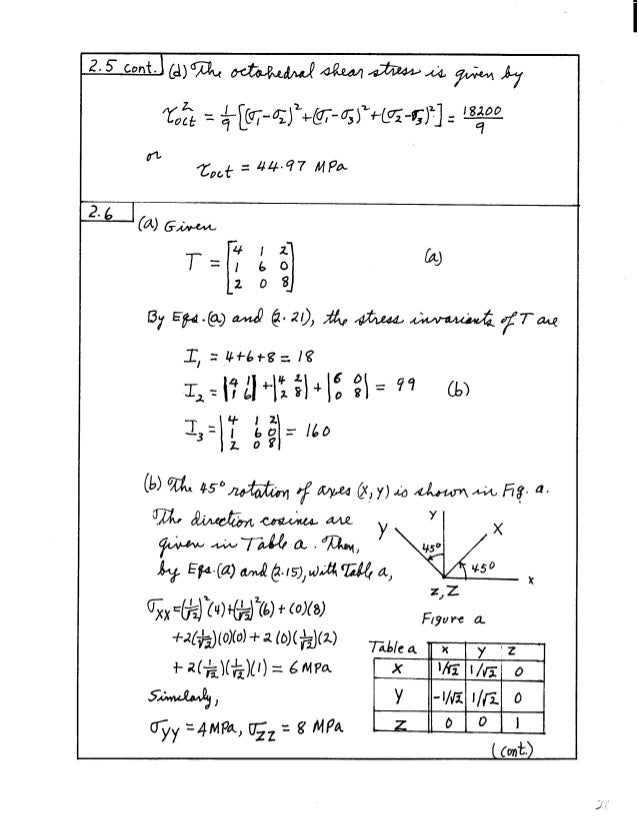 2.5 cont. (d) The octahedral shear stress is given by
τ²oct = 1/9 [(σ₁-σ₂)² + (σ₁-σ₃)² + (σ₂-σ₃)²] = 18200/9
or
τoct = 44.97 MPa
2.6
(a) Given
T = [4 1 2
1 6 0
2 0 8] (a)
By Eqs. (a) and (2.21), the stress invariants of T are
I₁ = 4+6+8 = 18
I₂ = |4 1; 1 6| + |4 2; 2 8| + |6 0; 0 8| = 99 (b)
I₃ = |4 1 2; 1 6 0; 2 0 8| = 160
(b) The 45° rotation of axes (X, Y) is shown in Fig. a.
The direction cosines are
given in Table a. Then,
by Eqs. (a) and (2.15), with Table a,
σXX = (1/√2)²(4) + (1/√2)²(6) + (0)(8)
+2(1/√2)(0)(0) + 2(0)(1/√2)(2)
+2(1/√2)(1/√2)(1) = 6 MPa
Similarly,
σYY = 4 MPa, σZZ = 8 MPa
y
Y X
45° 45°
x
z, Z
Figure a
Table a x y z
X 1/√2 1/√2 0
Y -1/√2 1/√2 0
Z 0 0 1
(cont.)